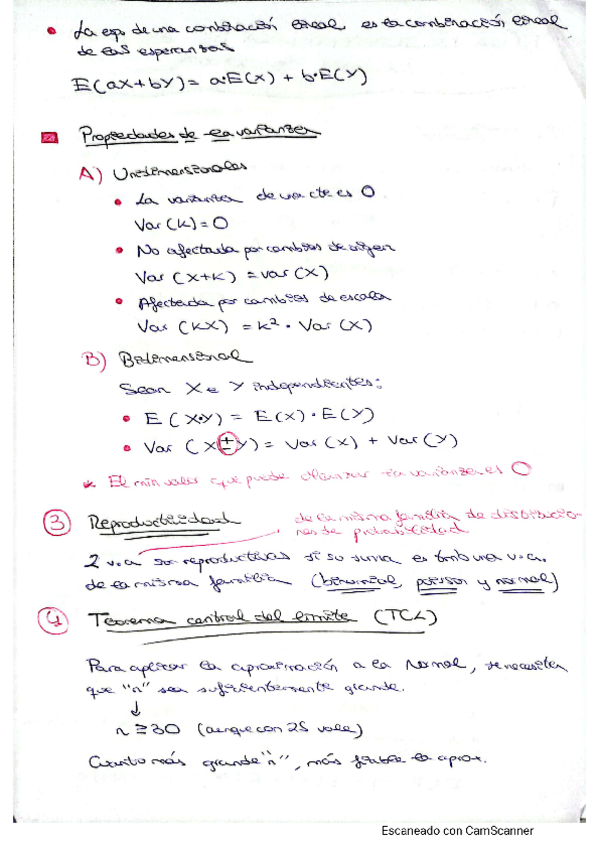 • La esp de una combinación lineal es la combinación lineal
de las esperanzas
E(aX+bY) = a·E(X) + b·E(Y)
Propiedades de la varianza
A) Unidimensionales
• La varianza de una cte es 0
Var (K) = 0
• No afectada por cambios de origen
Var (X+K) = Var (X)
• Afectada por cambios de escala
Var (KX) = K² · Var (X)
B) Bidimensional
Sean X e Y independientes:
• E (X·Y) = E(X) · E(Y)
• Var (X ± Y) = Var (X) + Var (Y)
* El min valor que puede alcanzar la varianza es 0
③ Reproductividad
de la misma familia de distribucio-
nes de probabilidad
2 v.a son reproductivas si su suma es tmb una v.a.
de la misma familia (binomial, poisson y normal)
④ Teorema central del límite (TCL)
Para aplicar la aproximación a la Normal, se necesita
que "n" sea suficientemente grande.
↓
n ≥ 30 (aunque con 25 vale)
Cuanto más grande "n", más fiable la aprox.
Escaneado con CamScanner